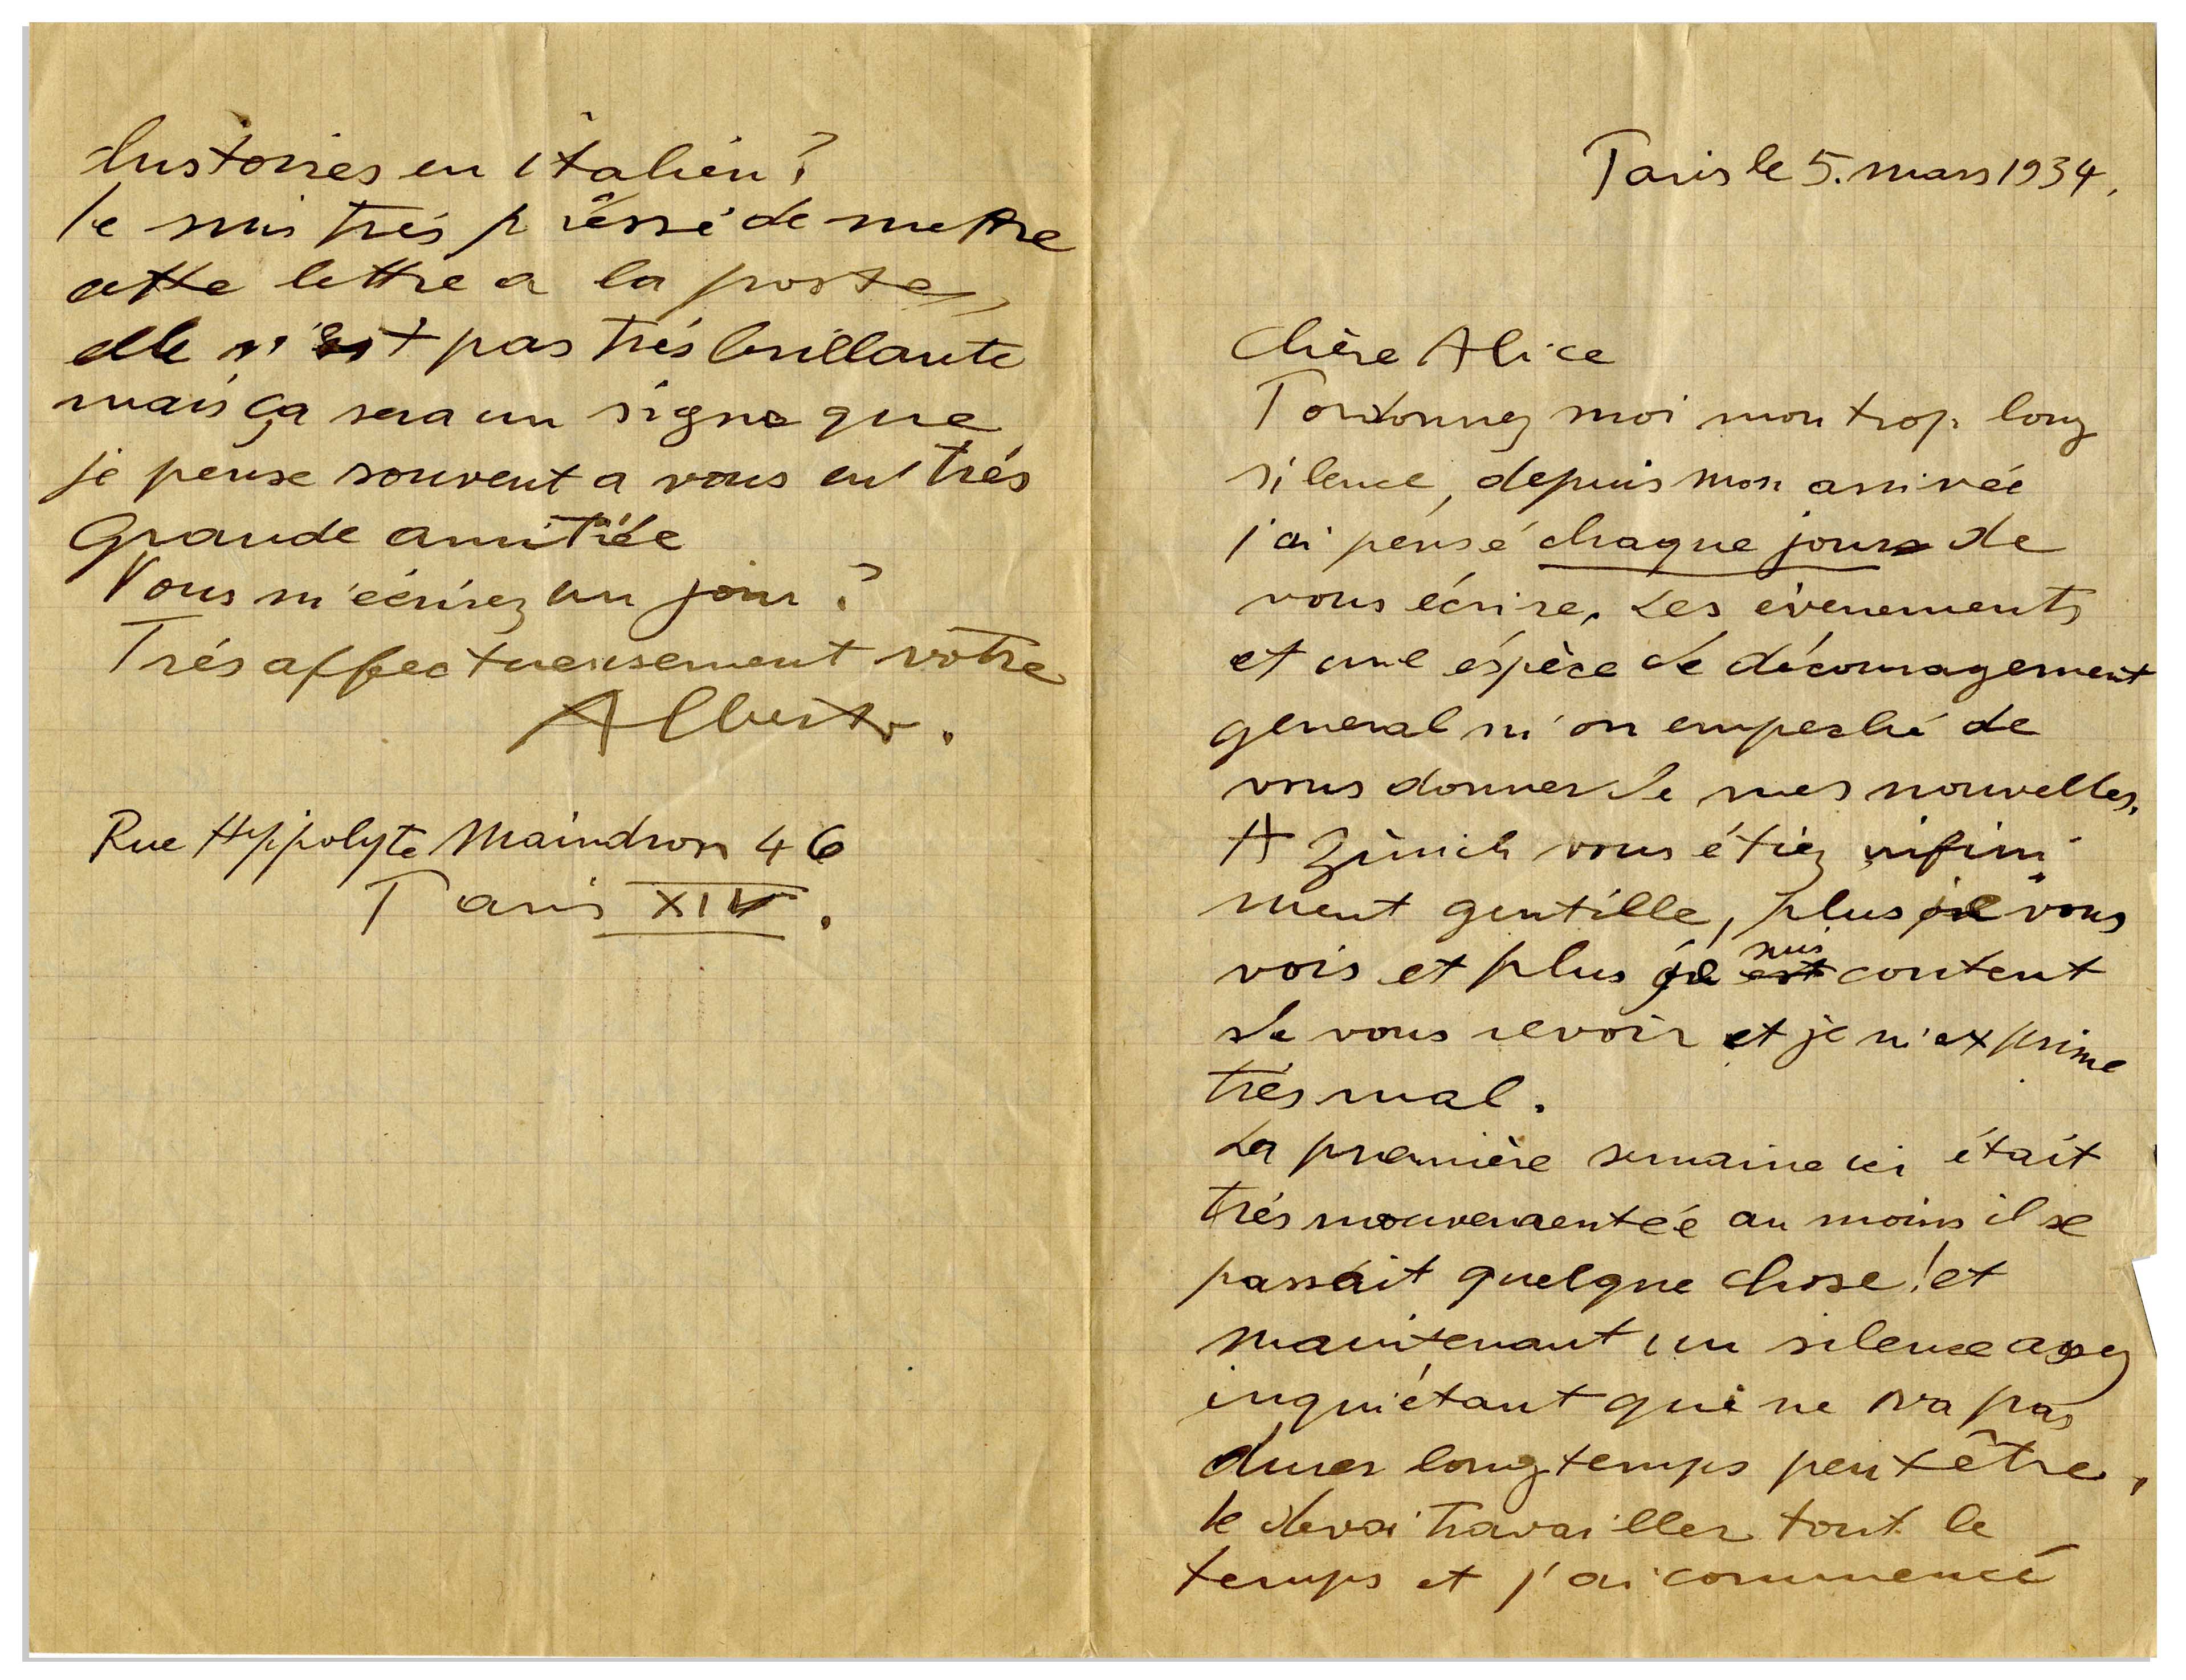 Paris le 5. mars 1934.
Chère Alice
Pardonnez moi mon trop long
silence, depuis mon arrivée
j'ai pensé chaque jour de
vous écrire. Les évenements
et une éspèce de découragement
general m'on empeshé de
vous donner de mes nouvelles.
A Zürich vous étiez infini-
ment gentille, plus je vous
vois et plus je suis content
de vous revoir et je m'exprime
trés mal.
La première semaine ici était
trés mouvementée au moins il se
passait quelque chose! et
maintenant un silence assez
inquiétant qui ne va pas
durer longtemps peut être.
Je devai travailler tout le
temps et j'ai commencé
histoires en italien?
Je suis trés préssé de mettre
cette lettre a la poste,
elle n'est pas trés brillante
mais ça sera un signe que
je pense souvent a vous en trés
grande amitiée
Vous m'écrirez un jour?
Trés affectueusement votre
Alberto.
Rue Hyppolyte Maindron 46
Paris XIV.